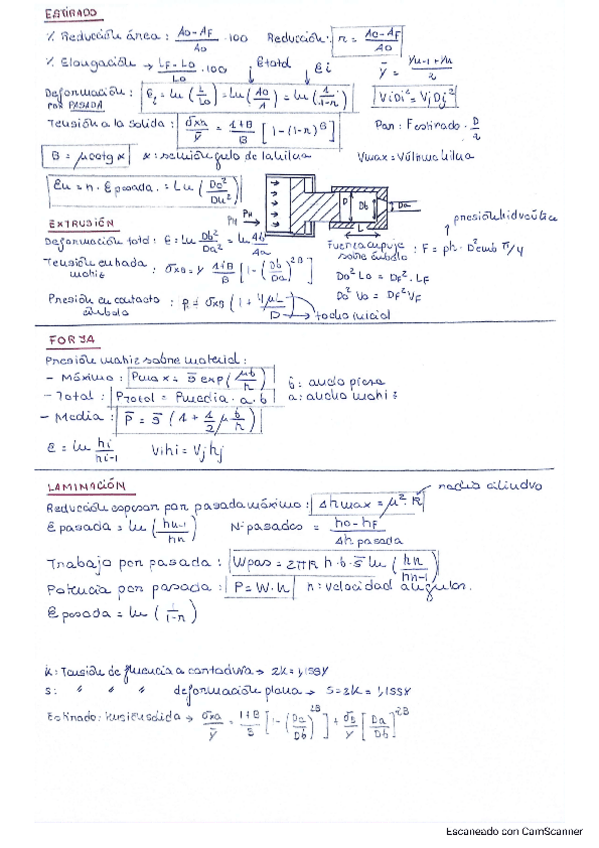 ESTIRADO
% Reducción área: (A0-AF)/A0 · 100 Reducción: r = (A0-AF)/A0
% Elongación → (LF-L0)/L0 · 100 Ɛtotal Ɛi ȳ = (Yn-1+Yn)/2
Deformación: Ɛi = ln(L/L0) = ln(A0/A) = ln(1/(1-r)) ViDi² = VjDj²
por PASADA
Tensión a la salida: σxn/ȳ = (1+B)/B [1-(1-r)^B] Par: Festirado · D/2
B = μcotg α α: semiángulo de la hilera Vmax = Vúltima hilera
Ɛu = n · Ɛpasada = Ln(D0²/Du²)
PH PH D Db Da L
EXTRUSIÓN presión hidráulica
Deformación total: Ɛ = ln Db²/Da² = ln Ab/Aa Fuerza empuje sobre émbolo: F = ph · D²emb π/4
Tensión entrada matriz: σxB = Y (1+B)/B [1-(Db/Da)^2B] D0² L0 = DF² · LF
D0² V0 = DF² VF
Presión en contacto émbolo: Pt = σxB (1 + 4μL/D) → tocho inicial
FORJA
Presión matriz sobre material:
- Máximo: Pmax = s̄ exp(μb/h) b: ancho pieza
- Total: Ptotal = Pmedia · a · b a: ancho matriz
- Media: P̄ = s̄ (1 + 1/2 μ b/h)
Ɛ = ln hi/hi-1 Vihi = Vjhj
LAMINACIÓN radio cilindro
Reducción espesor por pasada máximo: Δhmax = μ² · R
Ɛpasada = ln(hn-1/hn) Nºpasadas = (h0-hF)/Δh pasada
Trabajo por pasada: Wpas = 2πR h · b · s̄ ln(hn/hn-1)
Potencia por pasada: P = W · n n: velocidad angular.
Ɛpasada = ln(1/(1-r))
k: Tensión de fluencia a cortadura → 2k = 1,155Y
s: " " " deformación plana → S = 2k = 1,155Y
Estirado: tensión salida → σxa/ȳ = (1+B)/B [1-(Da/Db)^2B] + σb/Y [Da/Db]^2B
Escaneado con CamScanner